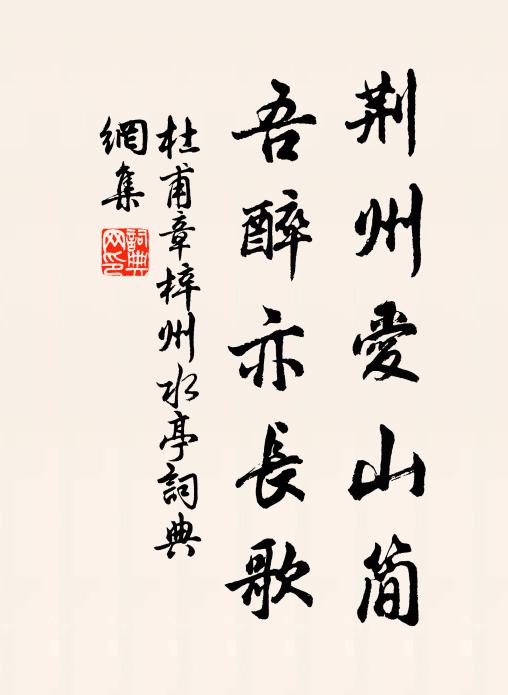 荆州愛山简
吾醉亦長歌
杜甫章梓州水亭詞典
網集
詞典
网印